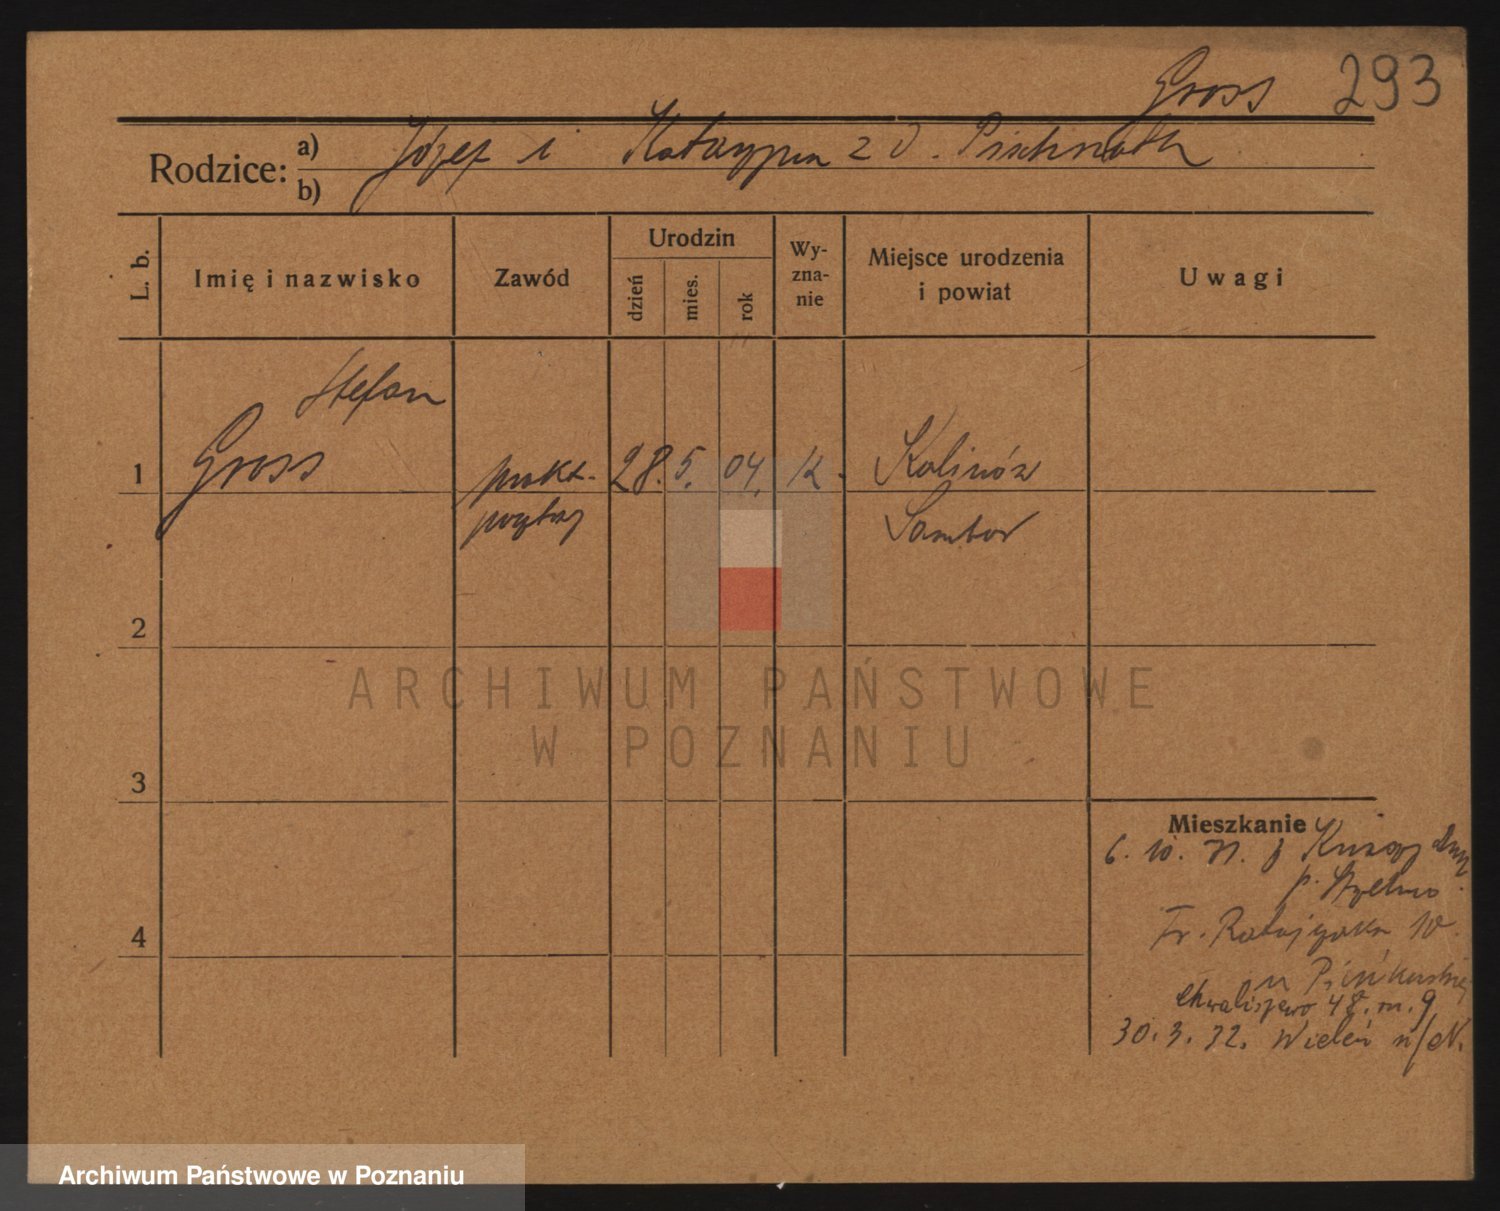 Gross 293
Rodzice: a) Józef i Katarzyna z d.
b)
L. b.
Imię i nazwisko
Zawód
Urodzin
dzień
mies.
rok
Wy-
zna-
nie
Miejsce urodzenia
i powiat
Uwagi
Stefan
1 Gross prakt. 28. 5. 04. k. Kalinów
Sambor
2
ARCHIWUM PAŃSTWOWE
W POZNANIU
3
Mieszkanie
6. 10. 31. z
p.
4 Fr. Ratajczaka 10.
Chwaliszewo 48. m. 9
30. 3. 32. Wieleń n/N.
Archiwum Państwowe w Poznaniu